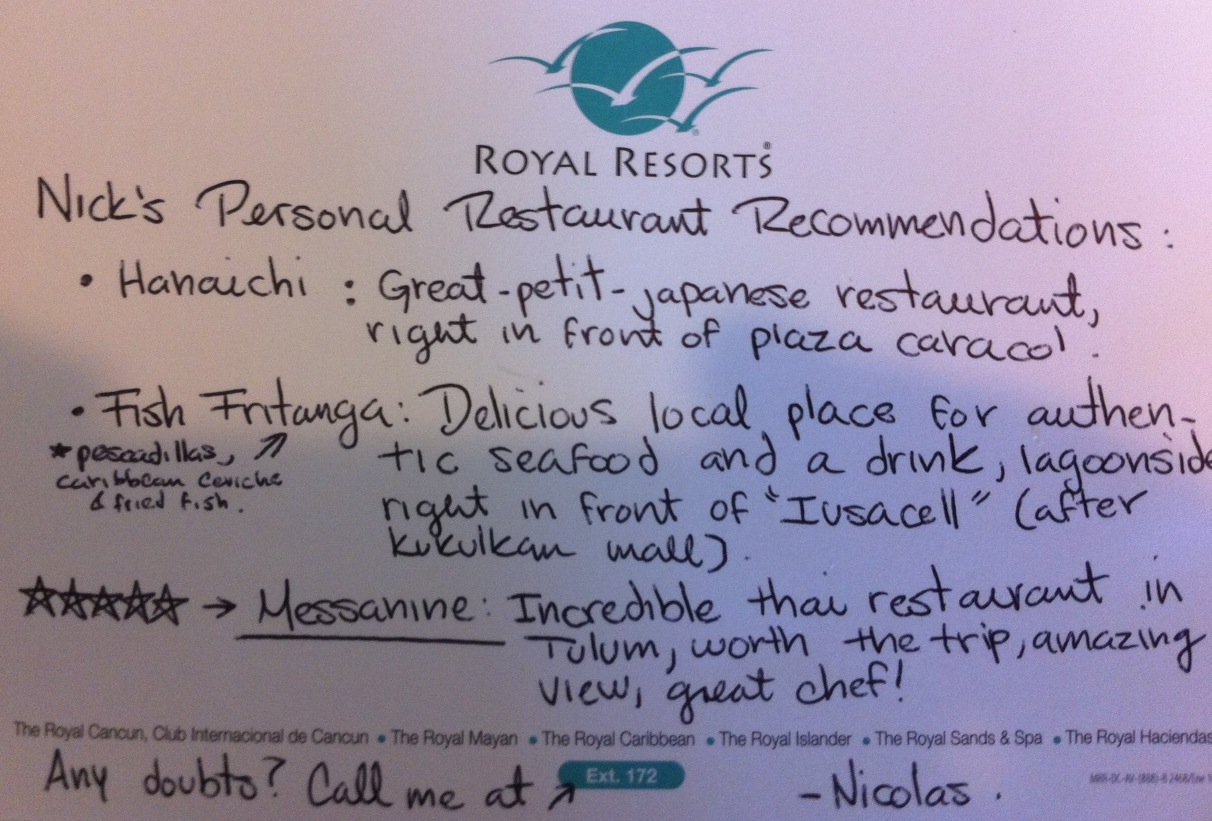 ROYAL RESORTS®
Nick's Personal Restaurant Recommendations:
• Hanaichi: Great-petit-japanese restaurant,
right in front of plaza caracol.
• Fish Fritanga: Delicious local place for authen-
tic seafood and a drink, lagoonside
right in front of "Iusacell" (after
kukulkan mall).
*pescadillas, ↗
caribbean ceviche
& fried fish.
☆☆☆☆☆ → Messanine: Incredible thai restaurant in
Tulum, worth the trip, amazing
view, great chef!
The Royal Cancun, Club Internacional de Cancun • The Royal Mayan • The Royal Caribbean • The Royal Islander • The Royal Sands & Spa • The Royal Haciendas
Any doubts? Call me at ↗ Ext. 172
-Nicolas.